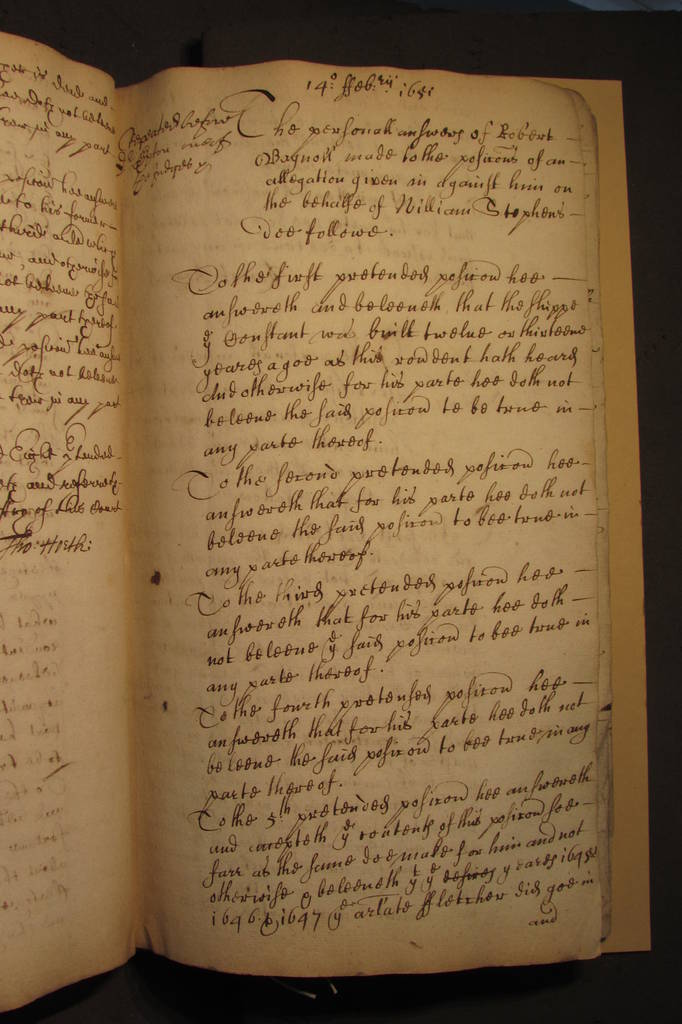 14.o ffeb:ry 1651
Repeated before
The personall answers of Robert
Bagnoll made to the posicons of an
allegation given in against him on
the behalfe of William Stephens
doe followe.
To the first pretended posicon hee
answereth and beleeveth that the shippe
ye Constant was built twelve or thirteene
yeares agoe as this rondent hath heard
And otherwise for his parte hee doth not
beleeve the said posicon to be true in
any parte thereof.
To the second pretended posicon hee
answereth that for his parte hee doth not
beleeve the said posicon to bee true in
any parte thereof.
To the third pretended posicon hee
answereth that for his parte hee doth
not beleeve ye said posicon to bee true in
any parte thereof.
To the fourth pretended posicon hee
answereth that for his parte hee doth not
beleeve the said posicon to bee true in any
parte thereof.
To the 5th pretended posicon hee answereth
and accepteth ye contents of this posicon soe
farr as the same doe make for him and not
otherwise & beleeveth yt ye yeares 1645
1646 & 1647 ye arlate ffletcher did goe in
and
not beleeve
in any part
to his former
not beleeve
any part thereof.
posicon hee
doth not beleeve
true in any part
Eight
and referreth
of this Court
Tho: Hirth: